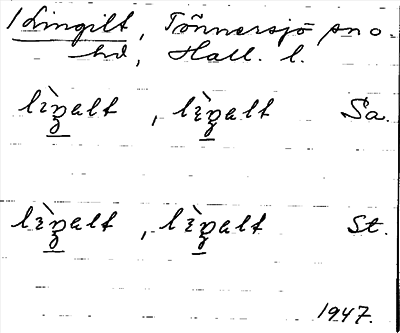 / Lingilt, Tönnersjö sn o.
hd, Hall. l.
lìŋalt, lìŋalt Sa.
lìŋalt, lìŋalt St.
1947.